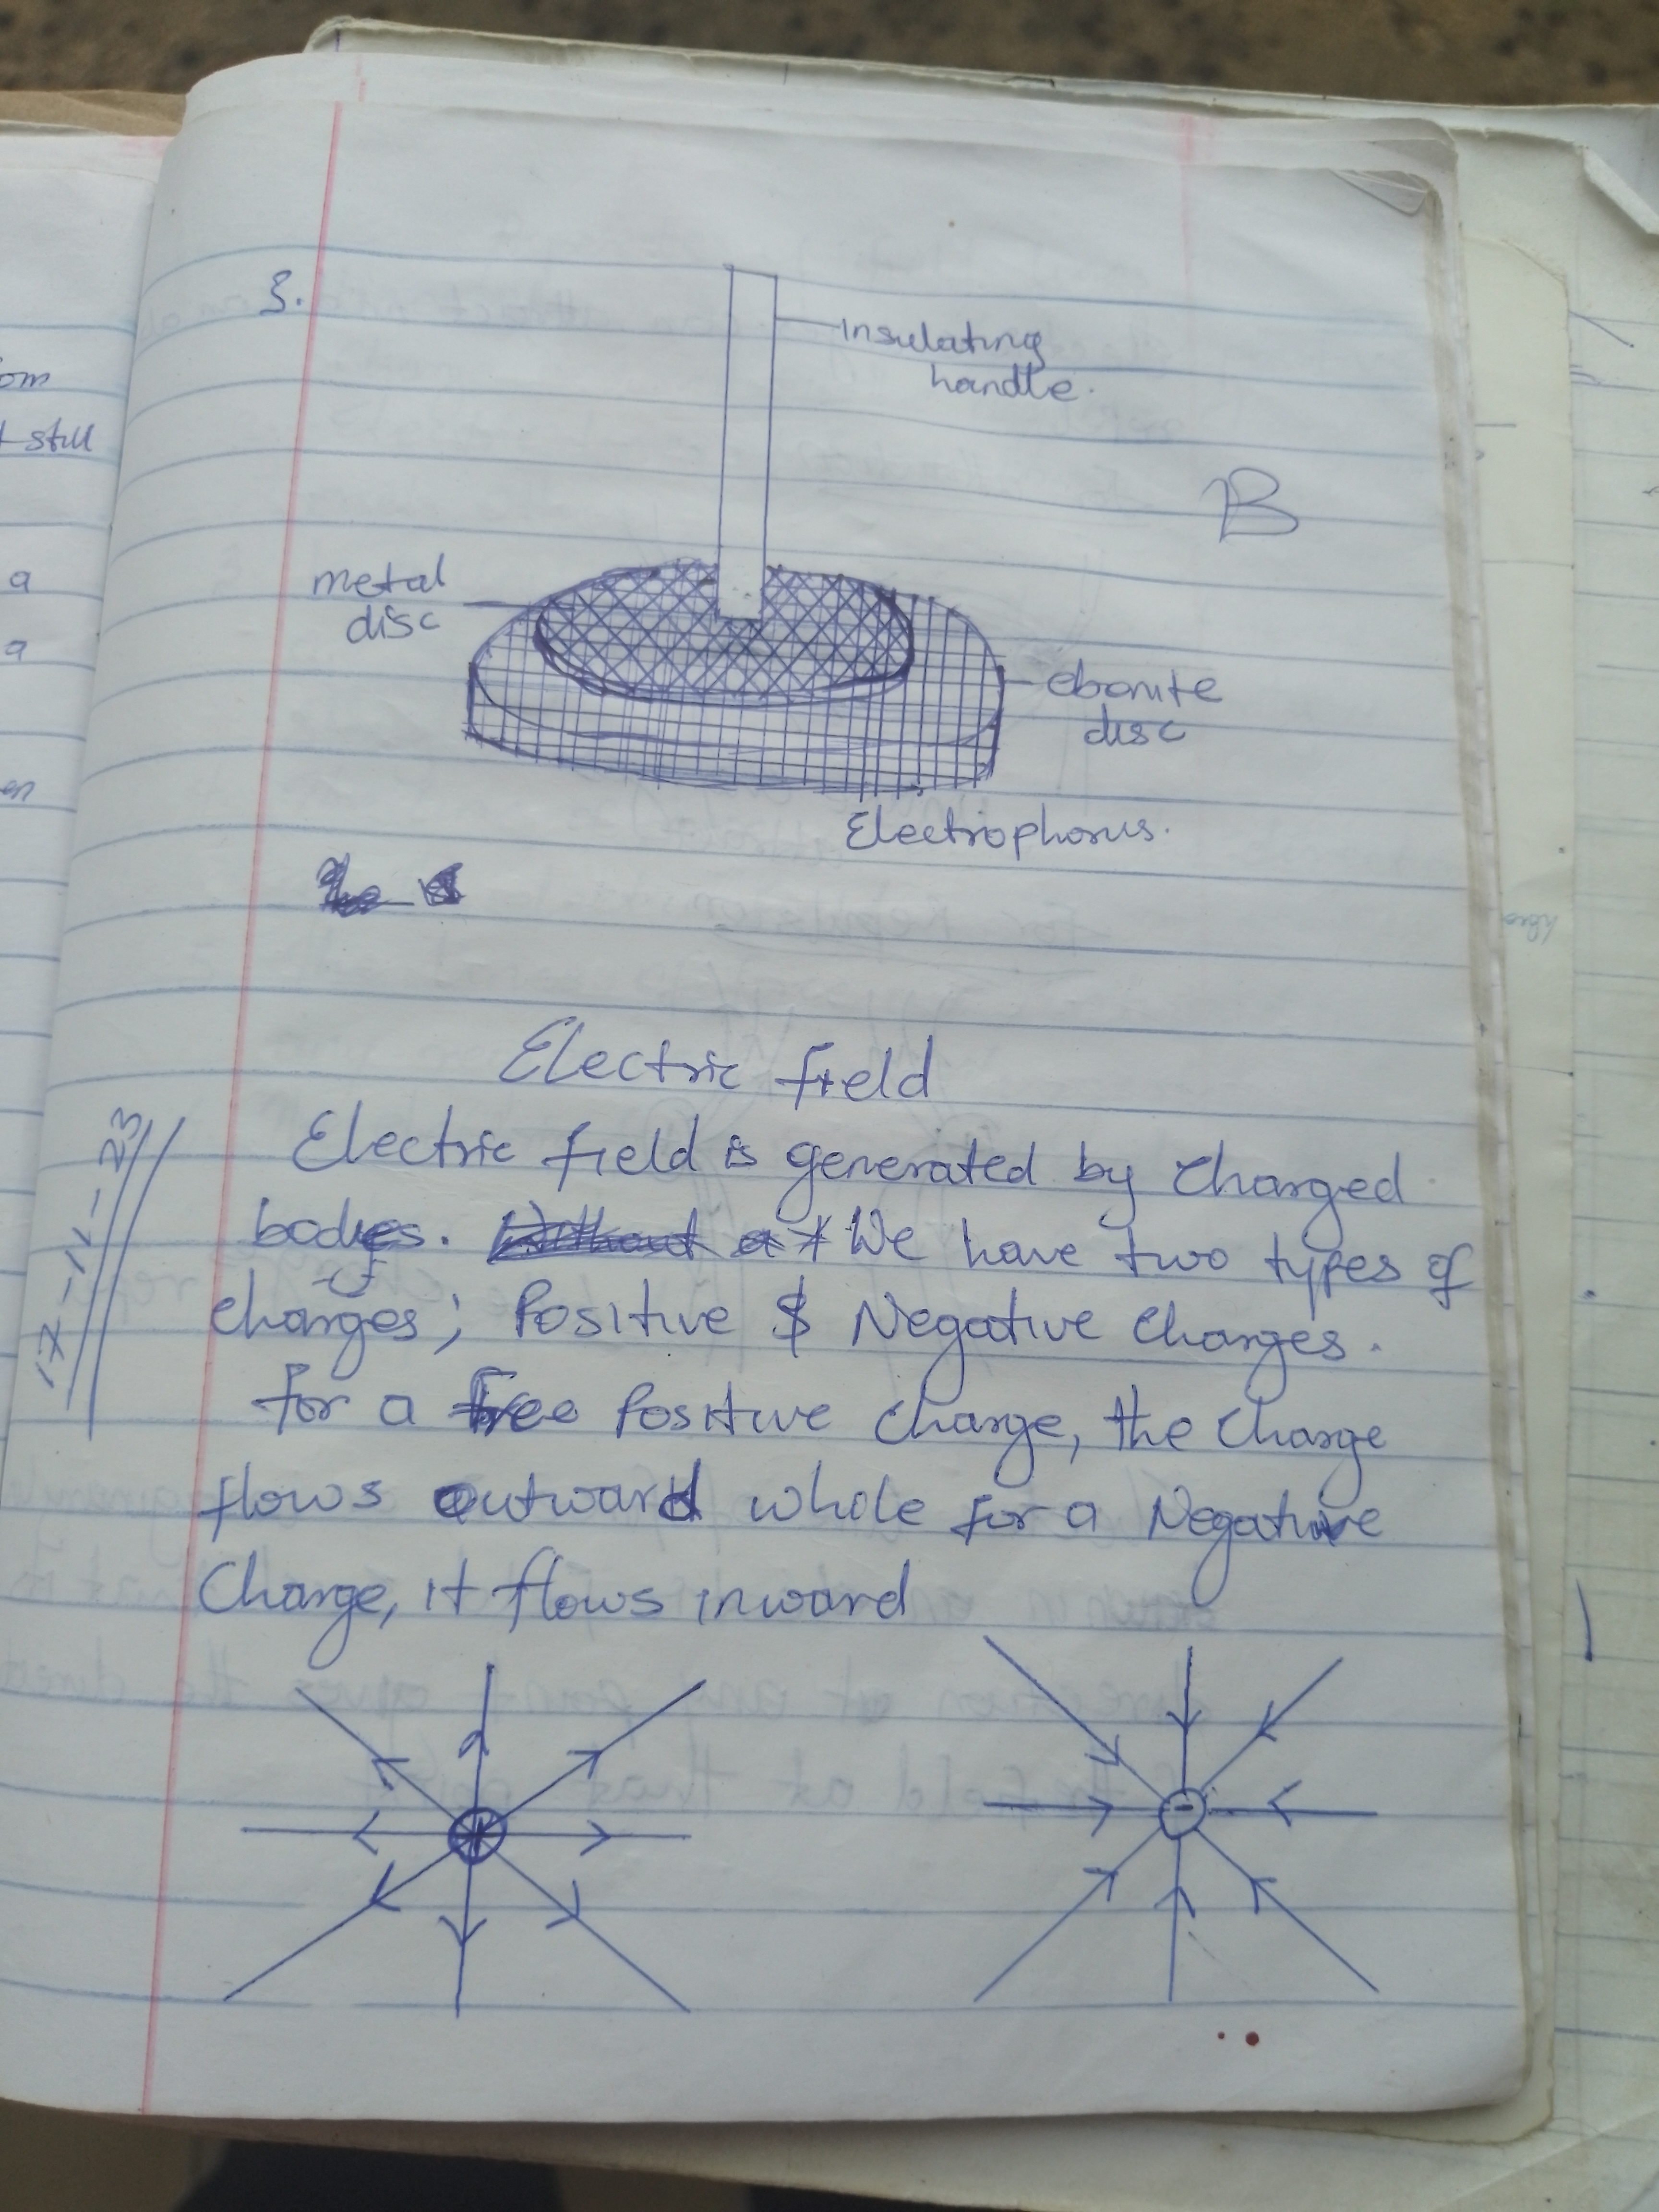 3.
insulating
handle.
B
metal
disc
ebonite
disc
Electrophorus.
Electric field
17-11-23
Electric field is generated by charged
bodies. We have two types of
charges; Positive $ Negative charges.
for a free Positive charge, the charge
flows outward whole for a Negative
Charge, it flows inward
-
om
t still
a
a
en